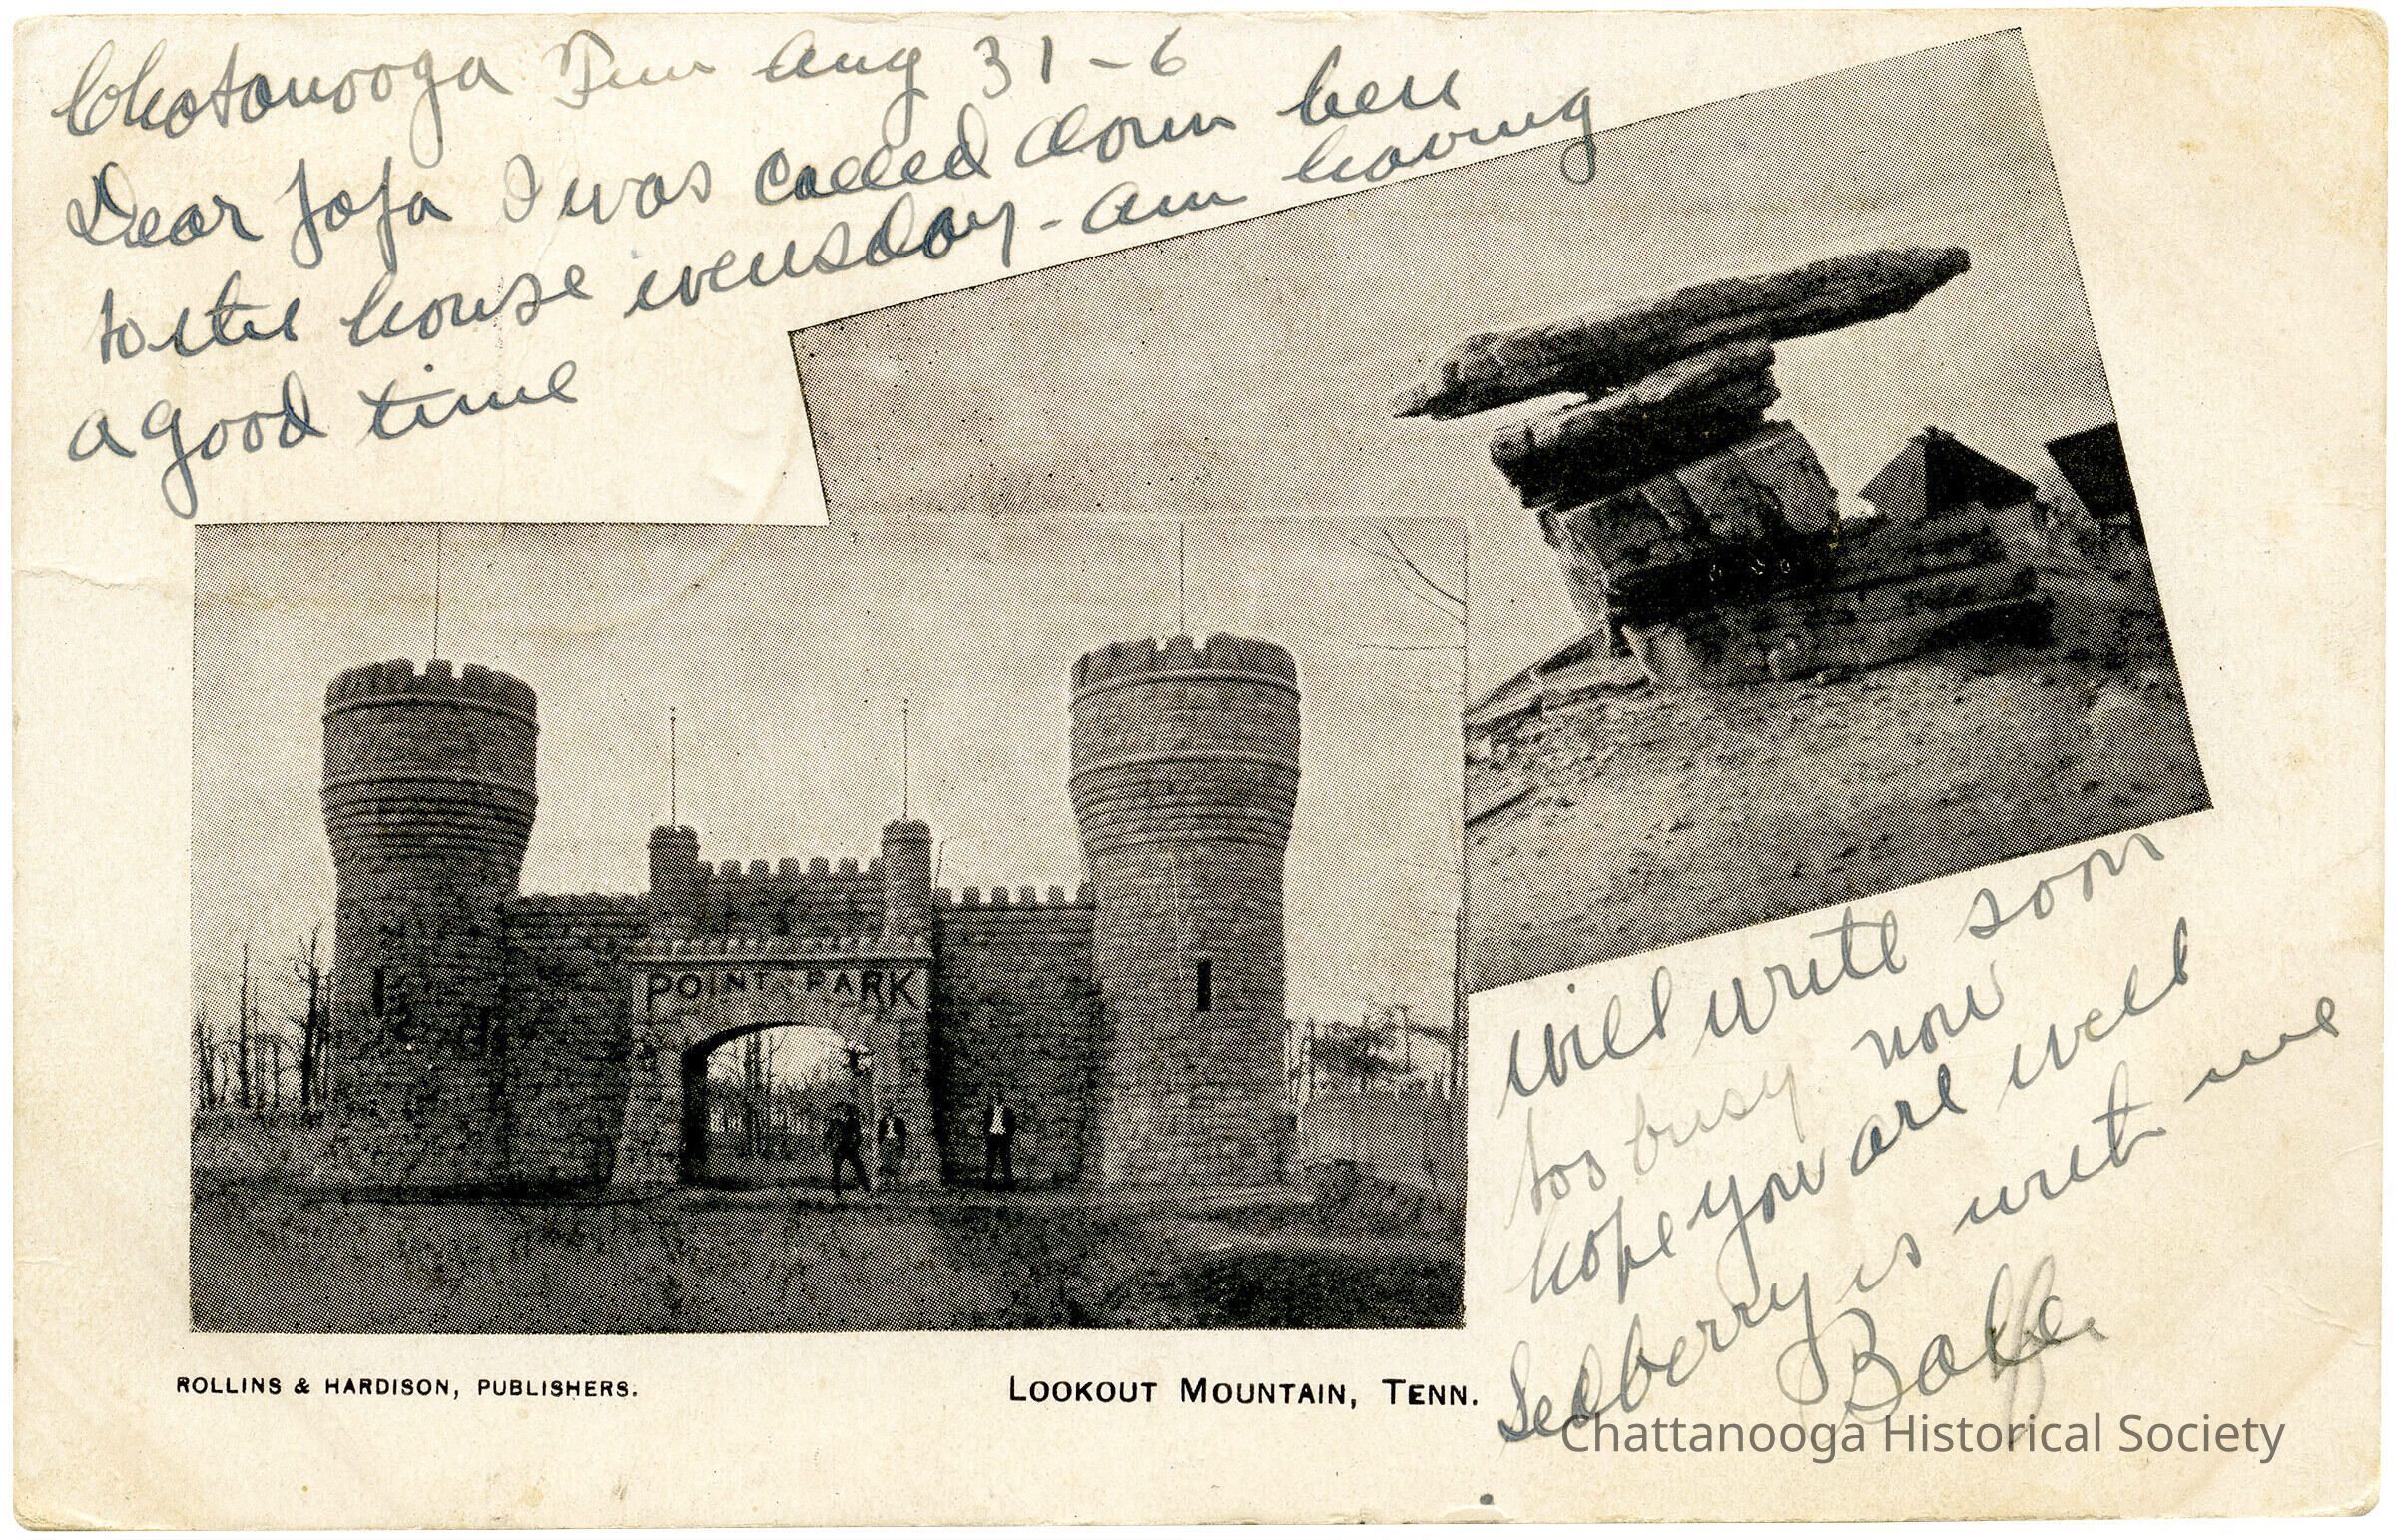 Chatanooga Tenn Aug 31-6
Dear Jofa I was called down here
to the house wensday - am having
a good time
POINT PARK
will write soon
too busy now
hope you are well
Sedberry is with me
Rolfe
ROLLINS & HARDISON, PUBLISHERS.
LOOKOUT MOUNTAIN, TENN.
Chattanooga Historical Society